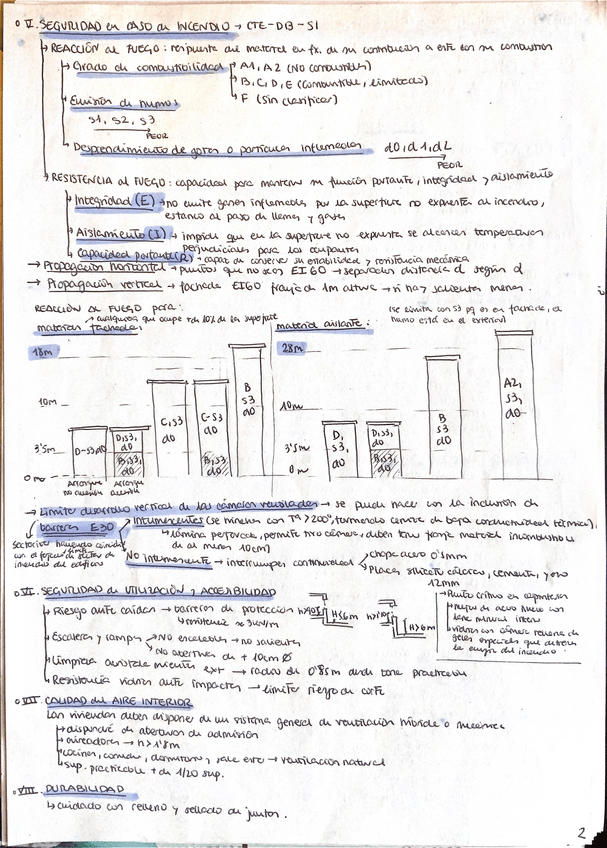 V. SEGURIDAD en CASO de INCENDIO → CTE-DB-SI
REACCIÓN al FUEGO: respuesta del material en fx. de su contribución a este con su combustión
Grado de combustibilidad
A1, A2 (NO combustibles)
B, C, D, E (Combustible, limitado)
F (Sin clasificar)
Emisión de humos
S1, S2, S3
PEOR
Desprendimiento de gotas o partículas inflamadas
d0, d1, d2
PEOR
RESISTENCIA al FUEGO: capacidad para mantener su función portante, integridad y aislamiento
Integridad (E) → no emite gases inflamados por la superficie no expuesta al incendio,
estanco al paso de llamas y gases
Aislamiento (I) → impide que en la superficie no expuesta se alcancen temperaturas
perjudiciales para los ocupantes
Capacidad portante (R) → capaz de conservar su estabilidad y resistencia mecánica
→ Propagación horizontal → puntos que no sean EI60 → separados distancia d según α
→ Propagación vertical → fachada EI60 franja de 1m altura → si hay salientes menor.
REACCIÓN al FUEGO para:
cualquiera que ocupe + de 10% de la superficie
materiales fachadas
material aislante:
(se limita con S3 pq es en fachada, el
humo está en el exterior)
18m
10m
3'5m
0 m
D-S3,d0
D,S3,
d0
B,S3,
d0
C,S3
d0
C-S3
d0
B,S3,
d0
B
S3
d0
Arranque
no accesible
Arranque
accesible
28m
10m
3'5m
0m
D,
S3,
d0
D,S3,
d0
B,S3,
d0
B
S3
d0
A2,
S3,
d0
→ Límite desarrollo vertical de las cámaras ventiladas → se puede hacer con la inclusión de
barreras E30
Intumescentes
(se hinchan con Tª >200º, formando ceniza de baja conductividad térmica),
lámina perforada, permite
cámara, deben tener franja material incombustible
de al menos 10cm)
No intumescente → interrumpen continuidad
chapa acero 0'5mm
Placas silicato cálcico, cemento, yeso
12mm
VI. SEGURIDAD de UTILIZACIÓN y ACCESIBILIDAD
Riesgo ante caídas → barreras de protección
resistencia
Escaleras y rampas
No escalables → no salientes
No aberturas de + 10cm Ø
Limpieza acristalamientos ext → radio de 0'85m desde zona practicable
Resistencia vidrios ante impactos → limitar riesgo de corte
H≤6m
H>6m
Punto crítico en carpinterías
vidrios con cámara rellena de
geles especiales que
VII. CALIDAD del AIRE INTERIOR
Las viviendas deben disponer de un sistema general de ventilación híbrida o mecánica
dispondrá de aberturas de admisión
aireadores → h>1'8m
cocinas, comedor, dormitorio, sala estar → ventilación natural
sup. practicable + de 1/20 sup.
VIII. DURABILIDAD
cuidado con relleno y sellado de juntas.
2